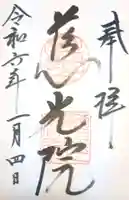 奉拝
慈光院
令和六年
一月四日